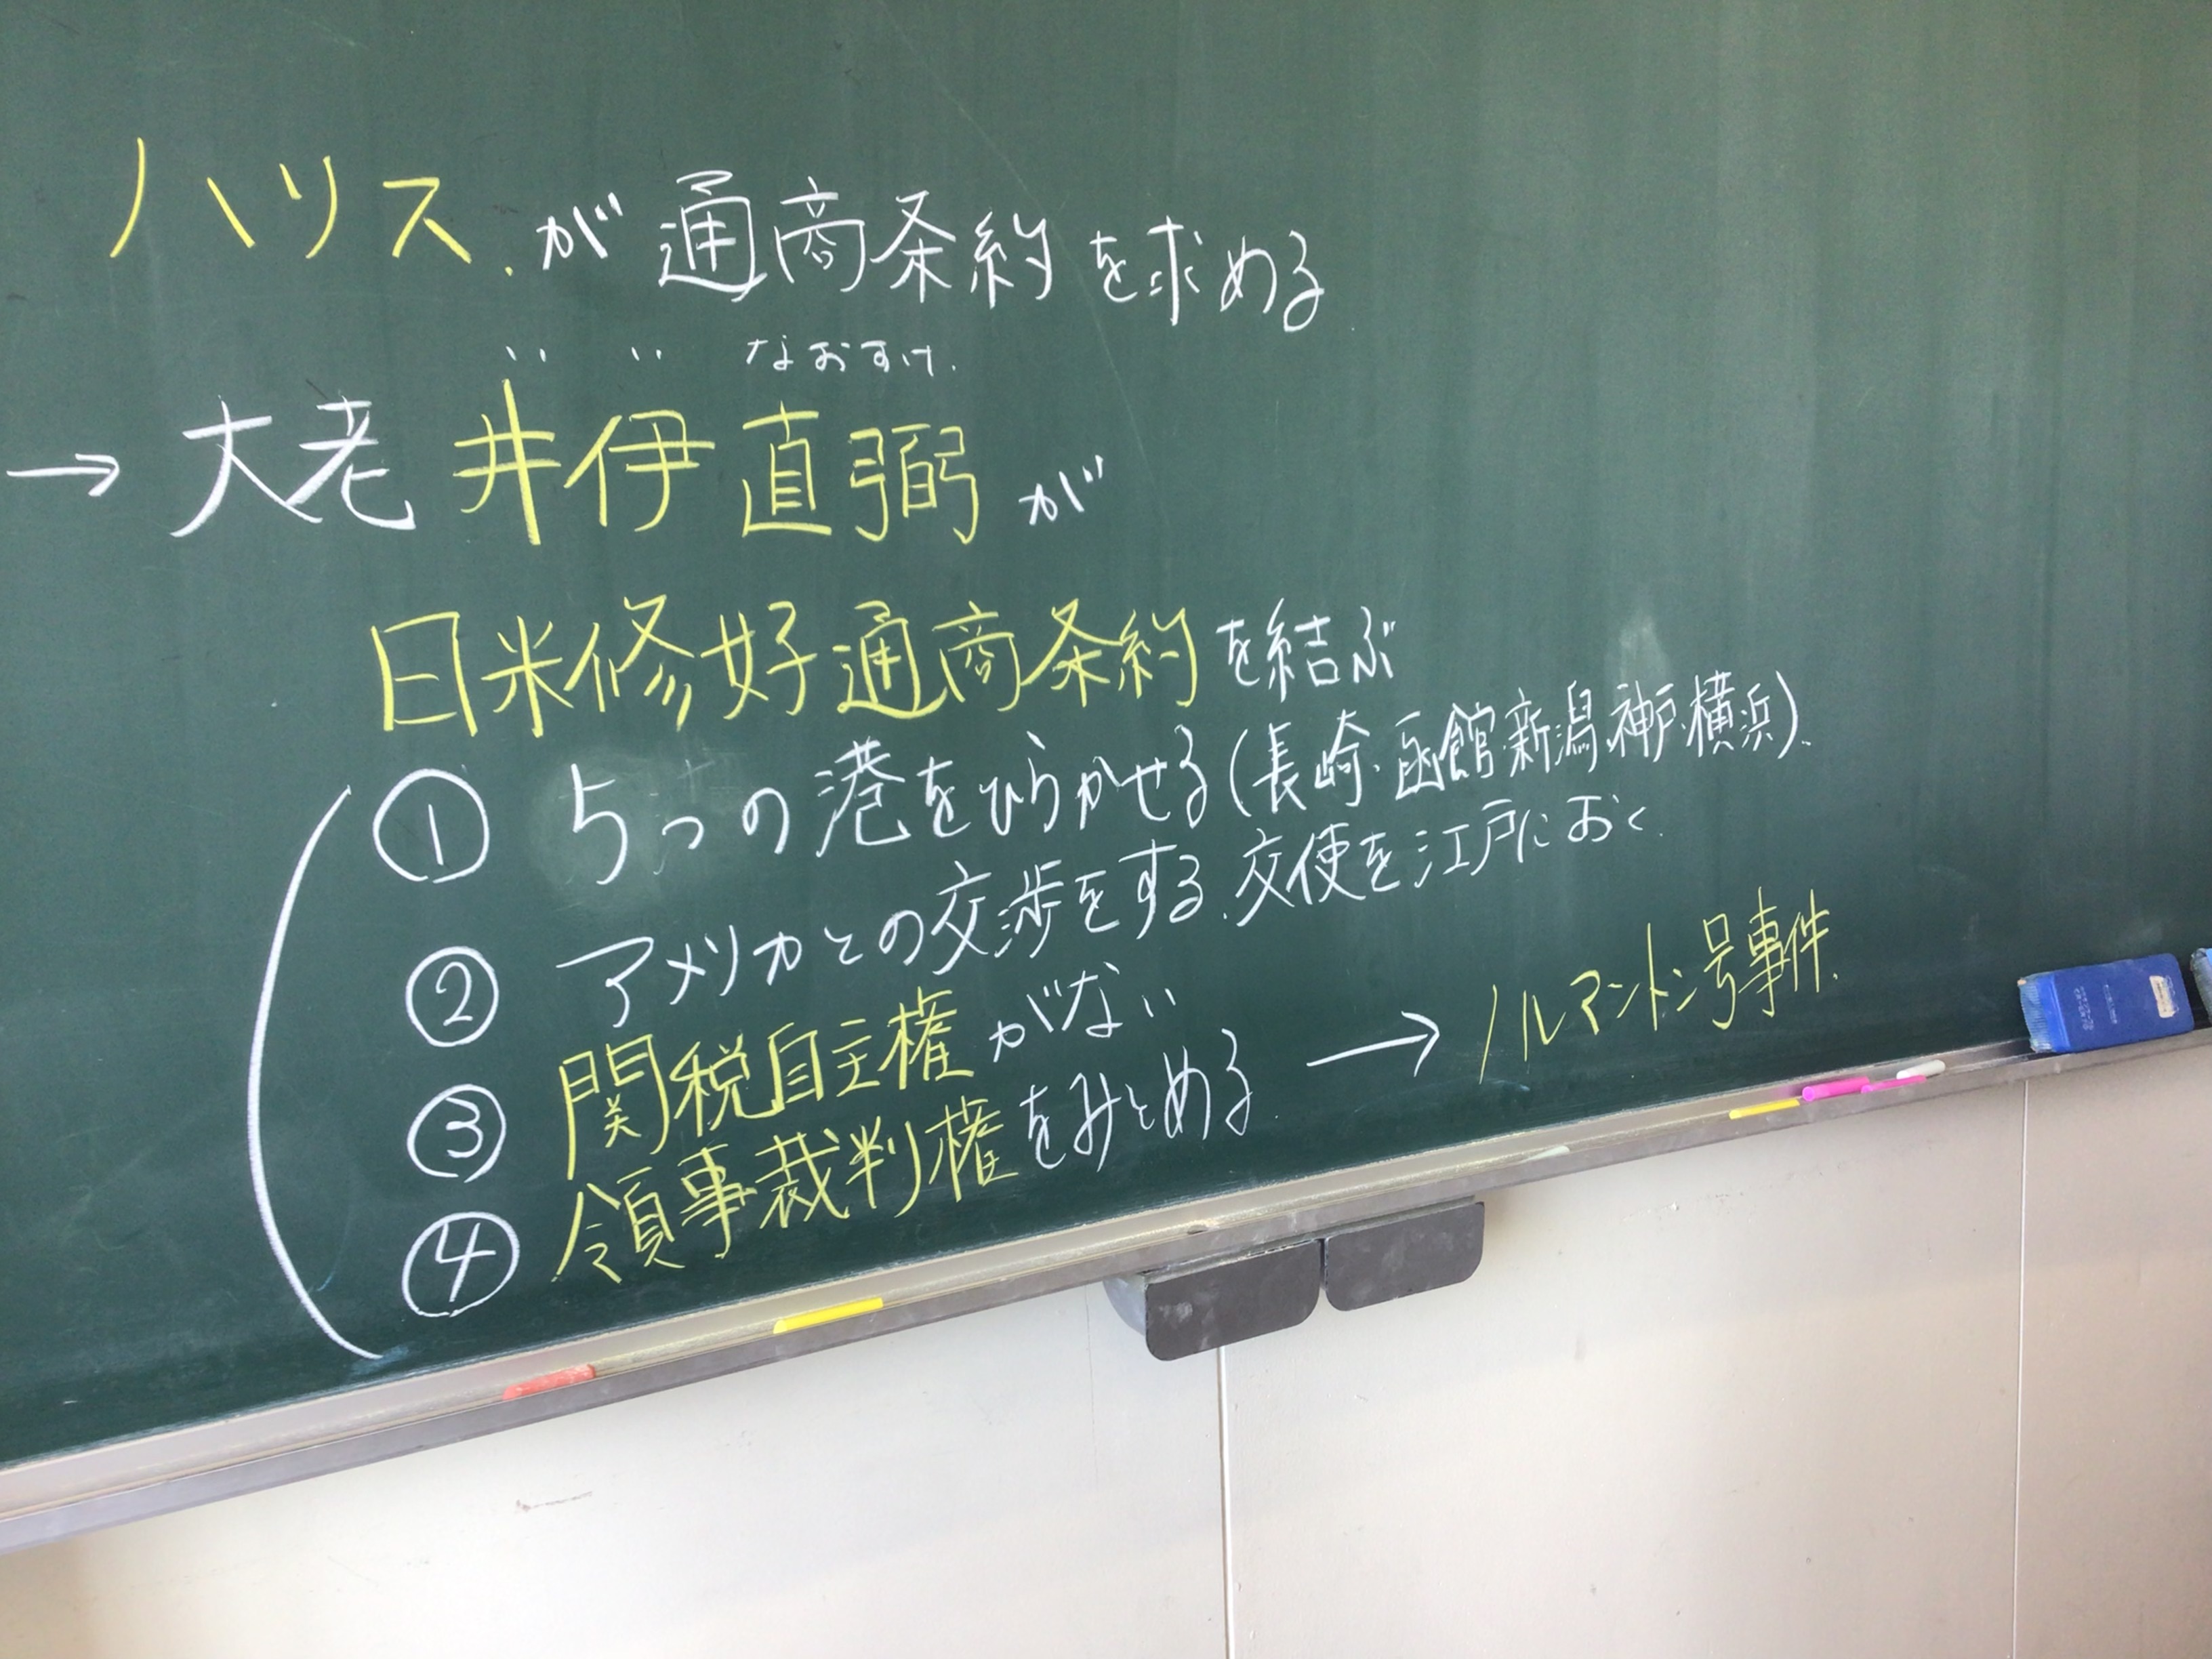 ハリス.が通商条約を求める
いい なおすけ.
→ 大老 井伊直弼が
日米修好通商条約を結ぶ
① 5つの港をひらかせる(長崎・函館・新潟・神戸・横浜).
② アメリカとの交渉をする.交使を江戸におく.
③ 関税自主権がない
④ 領事裁判権をみとめる. → ノルマントン号事件.